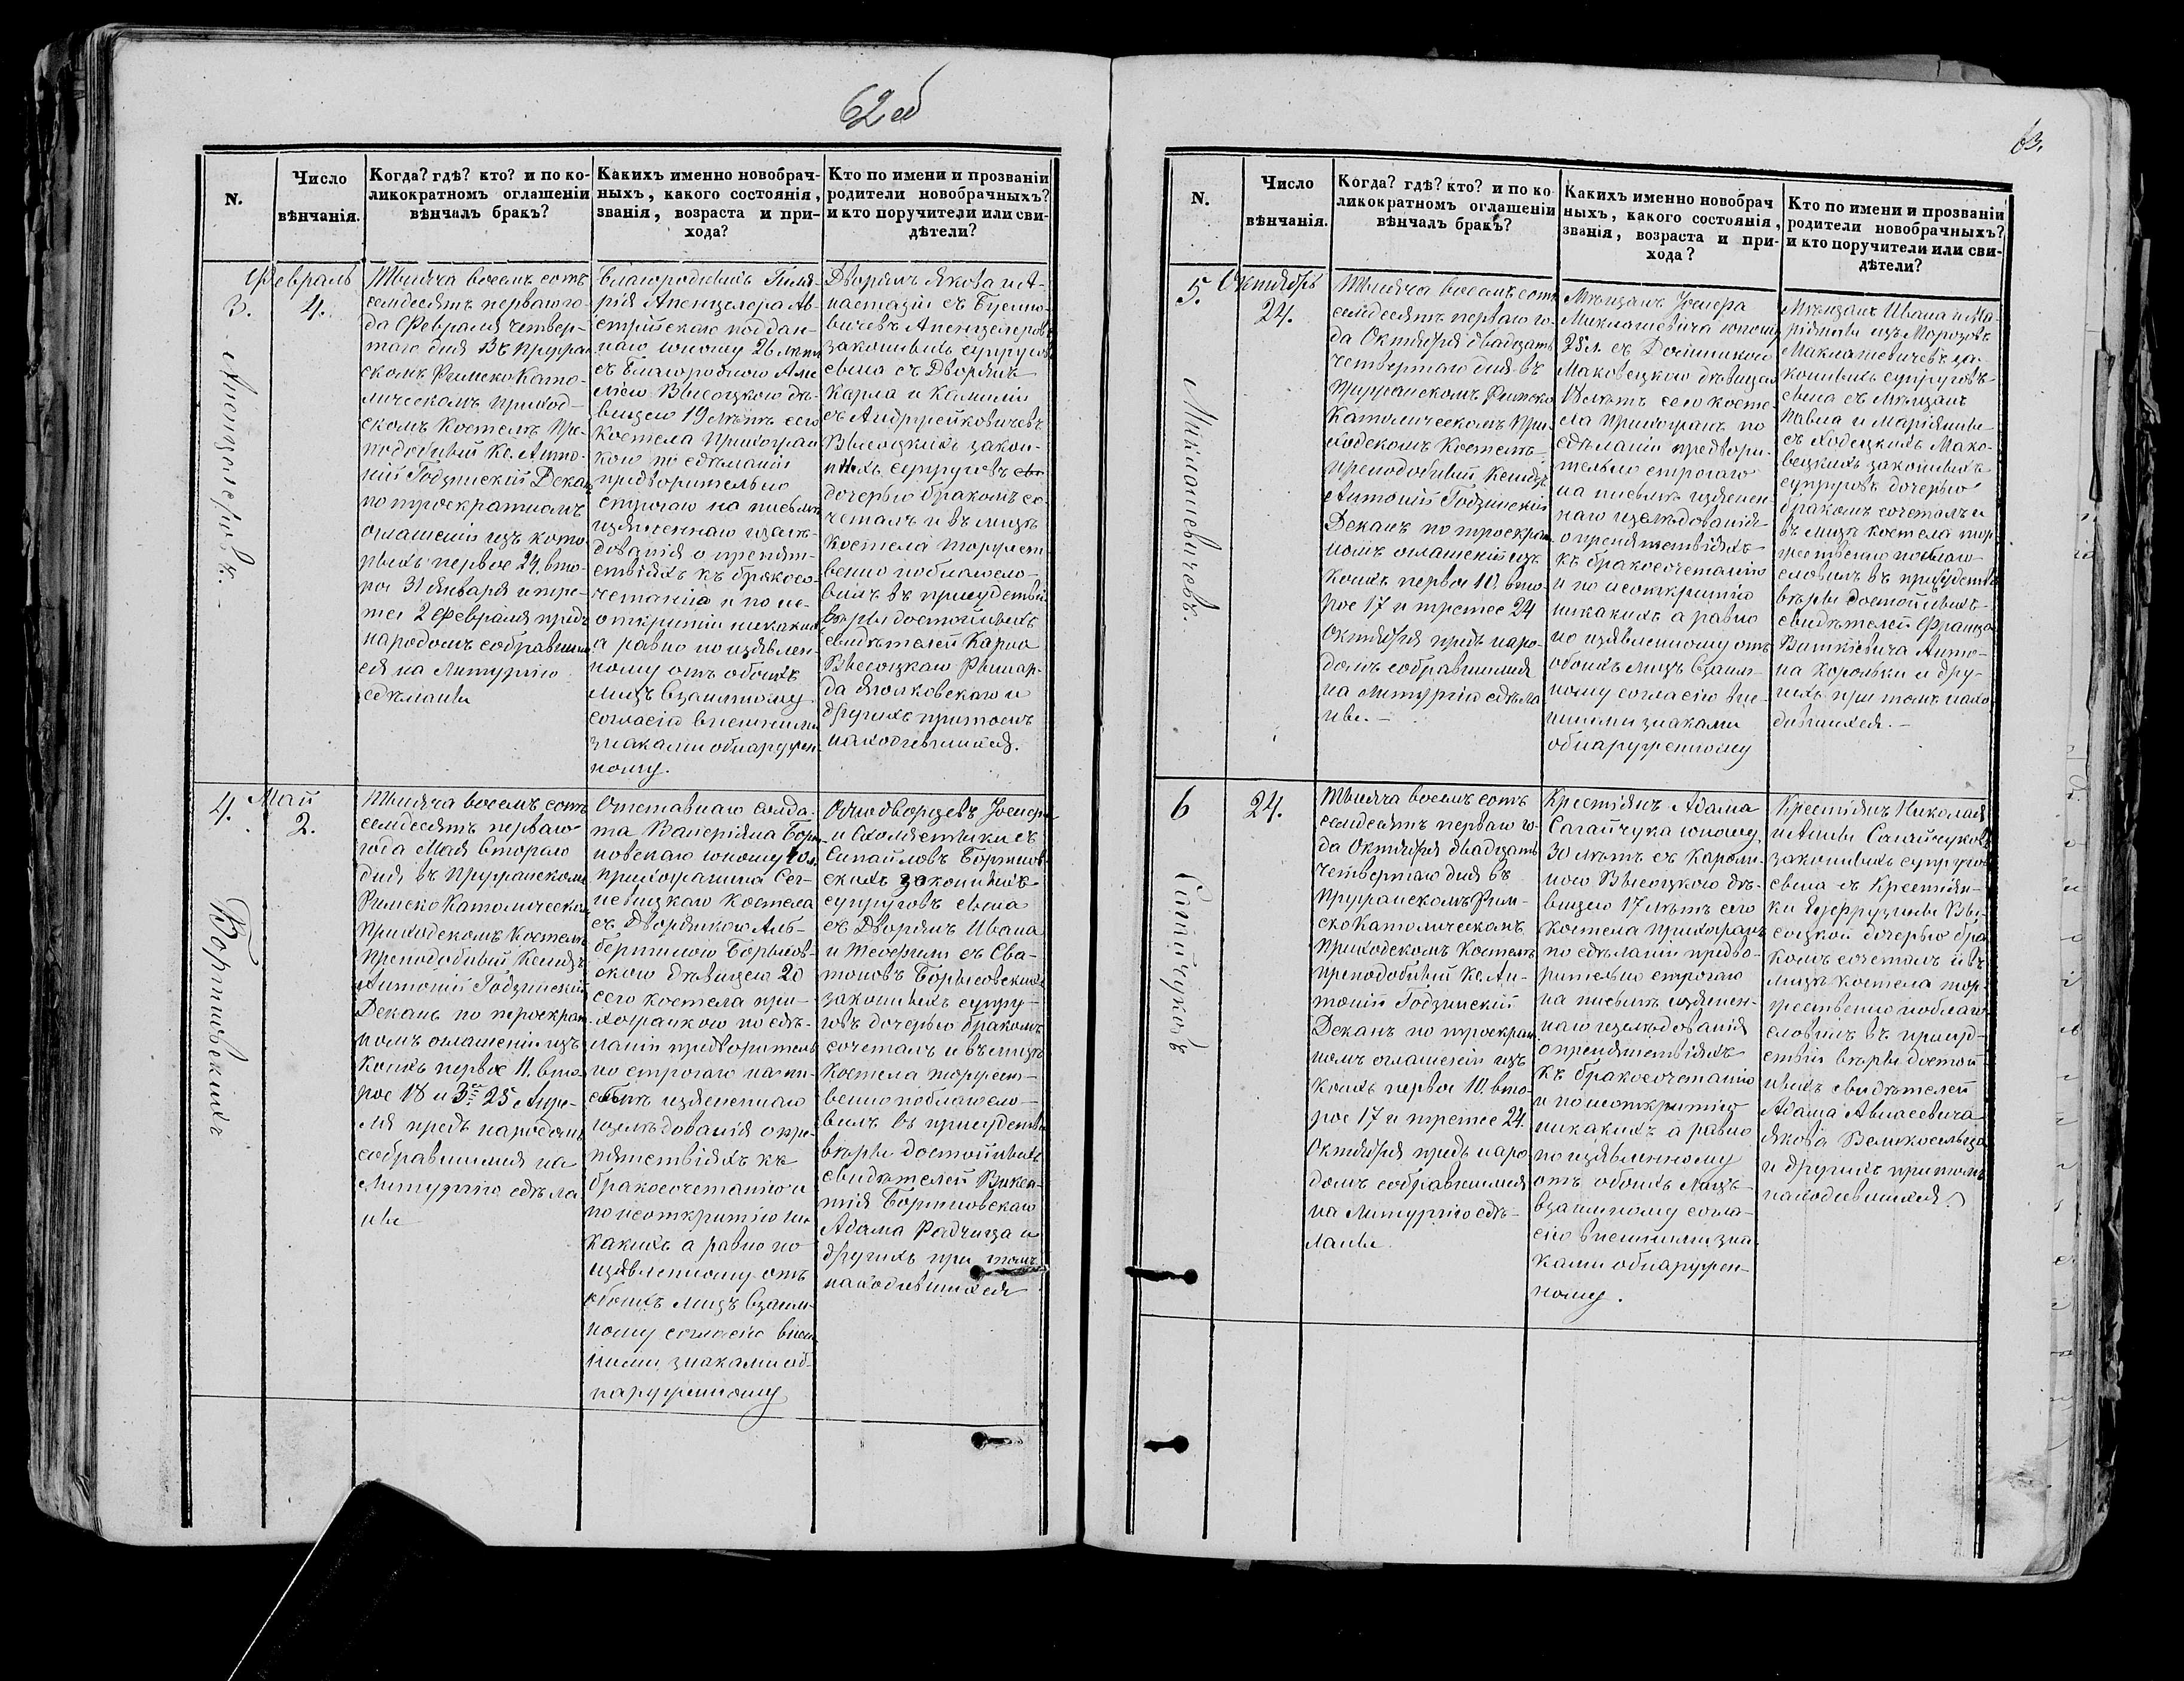 62 об
N.
Число
вѣнчанія.
Когда? гдѣ? кто? и по ко-
ликократномъ оглашеніи
вѣнчалъ бракъ?
Какихъ именно новобрач-
ныхъ, какого состоянія,
званія, возраста и при-
хода?
Кто по имени и прозванію
родители новобрачныхъ?
и кто поручители или сви-
дѣтели?
3.
Февраль
4.
Тысяча восемь сотъ
семдесятъ перваго го-
да Февраля четвер-
таго дня въ
скомъ Римско Като-
лическомъ приход-
скомъ Костелѣ Пре-
подобный Кс. Анто-
ній Годзинскій Деканъ
по троекратномъ
оглашеніи изъ кото-
рыхъ первое 24, вто-
рое 31 Января и тре-
тее 2 Февраля предъ
народомъ собравшим-
ся на Литургію
сдѣланы
Благородныхъ
рія Апенцелера Ав-
стрійскаго поддан-
наго юношу 26 лѣтъ
съ Благородною Аме-
ліею Высоцкою дѣ-
вицею 19 лѣтъ сего
Костела прихожан
кою по сдѣланіи
предворительно
строгаго на письмѣ
изслѣ-
дованія о препят-
ствіяхъ къ бракосо-
четанію и по не-
открытіи никакихъ
а равно по изъявлен-
ному отъ обоихъ
лицъ взаимному
согласію внешними
знаками обнаружен-
ному.
Дворянъ Якова и А-
настазіи съ
вичевъ Апенцелеровъ
законныхъ супруговъ
сына съ Дворянъ
Карла и Камиліи
съ Андржейковичевъ
Высоцкихъ закон-
ныхъ супруговъ
дочерью бракомъ со-
четалъ и въ лицѣ
Костела торжест-
венно поблагосло-
вилъ въ присудствіи
вѣры достойныхъ
свидѣтелей Карла
Высоцкаго
да и
другихъ притомъ
находившихся.
4.
Май
2.
Бортновскихъ
Тысяча восемь сотъ
семдесятъ перваго
года Мая втораго
дня въ Пружанскомъ
Римско Католическомъ
приходскомъ Костелѣ
преподобный Ксендзъ
Антоній Годзинскій
Деканъ по троекрат
номъ оглашеніи изъ
коихъ первое 11. вто-
рое 18 и 3ее 25 Апре-
ля предъ народомъ
собравшимся на
Литургію сдѣла
ны
Отставнаго солда-
та Валеріяна Борт
новскаго юношу
прихожанина Сег-
невицкаго Костела
съ Дворянкою Аль-
бертиною Борысов-
скою дѣвицею 20
сего костела при-
хожанкою по сдѣ-
ланіи предворитель
но строгаго на пи-
сьмѣ
изслѣдованія о пре-
пятствіяхъ къ
бракосочетанію и
по неоткрытію ни
какихъ а равно по
изъявленному отъ
обоихъ лицъ взаим-
ному согласію внеш
ними знаками об-
наруженному
Однодворцевъ Іосифа
и Схоластики съ
Бортнов-
скихъ законныхъ
супруговъ сына
съ Дворянъ Ивана
и Теофили съ Сва-
тоновъ Борысовскихъ
законныхъ супру-
говъ дочерью бракомъ
сочеталъ и въ лицѣ
Костела торжест-
венно поблагосло-
вилъ въ присудствіи
вѣры достойныхъ
свидѣтелей Викен-
тія Бортновскаго
Адама и
другихъ при томъ
находившихся
63.
N.
Число
вѣнчанія.
Когда? гдѣ? кто? и по ко
ликократномъ оглашеніи
вѣнчалъ бракъ?
Какихъ именно новобрач
ныхъ, какого состоянія,
званія, возраста и при-
хода?
Кто по имени и прозваніи
родители новобрачныхъ?
и кто поручители или сви-
дѣтели?
5.
Октябрь
24.
Тысяча восемь сотъ
семдесятъ перваго го-
да Октября двадцать
четвертаго дня въ
Пружанскомъ Римско
Католическомъ При
ходскомъ Костелѣ
преподобный Ксендзъ
Антоній Годзинскій
Деканъ по троекрат
номъ оглашеніи изъ
коихъ первое 10, вто-
рое 17 и третее 24
Октября предъ наро-
домъ собравшимся
на Литургію сдѣла
ны.
Мѣщанъ Іосифа
юношу
25 л. съ
Маковецкою дѣвицею
18 лѣтъ сего косте-
ла прихожанъ по
сдѣланіи предвори-
тельно строгаго
на письмѣ
наго изслѣдованія
о препятствіяхъ
къ бракосочетанію
и по неоткрытію
никакихъ а равно
по изъявленному отъ
обоихъ лицъ взаим-
ному согласію вне-
шними знаками
обнаруженному
Мѣщанъ Ивана и Ма
ріянны изъ Морозовъ
за-
конныхъ супруговъ
сына съ Мѣщанъ
Павла и Маріянны
съ Мако-
вецкихъ законныхъ
супруговъ дочерью
бракомъ сочеталъ и
въ лицѣ костела тор
жественно поблаго-
словилъ въ присудствіи
вѣры достойныхъ
свидѣтелей Франца
Виткевича Анто-
на и дру-
гихъ при томъ нахо-
дившихся.
6
24.
Тысяча восемь сотъ
семдесятъ перваго го-
да Октября двадцать
четвертаго дня въ
Пружанскомъ Рим-
ско Католическомъ
приходскомъ Костелѣ
преподобный Кс. Ан-
тоній Годзинскій
Деканъ по троекрат
номъ оглашеніи изъ
коихъ первое 10. вто-
рое 17 и третее 24.
Октября предъ наро
домъ собравшимся
на Литургію сдѣ-
ланы.
Крестьянъ Адама
юношу
30 лѣтъ съ Кароли-
ною Высоцкою дѣ-
вицею 17 лѣтъ сего
костела прихожанъ
по сдѣланіи предво-
рительно строгаго
на письмѣ
наго изслѣдованія
о препятствіяхъ
къ бракосочетанію
и по неоткрытію
никакихъ а равно
по изъявленному
отъ обоихъ лицъ
взаимному согла-
сію внешними зна
ками обнаружен-
ному.
Крестьянъ Николая
и Анны
законныхъ супруговъ
сына съ Крестьян-
ки Вы-
соцкой дочерью бра
комъ сочеталъ и въ
лицѣ костела тор-
жественно поблаго
словилъ въ присуд-
ствіи вѣры достой
ныхъ свидѣтелей
Адама
Якова
и другихъ притомъ
находившихся